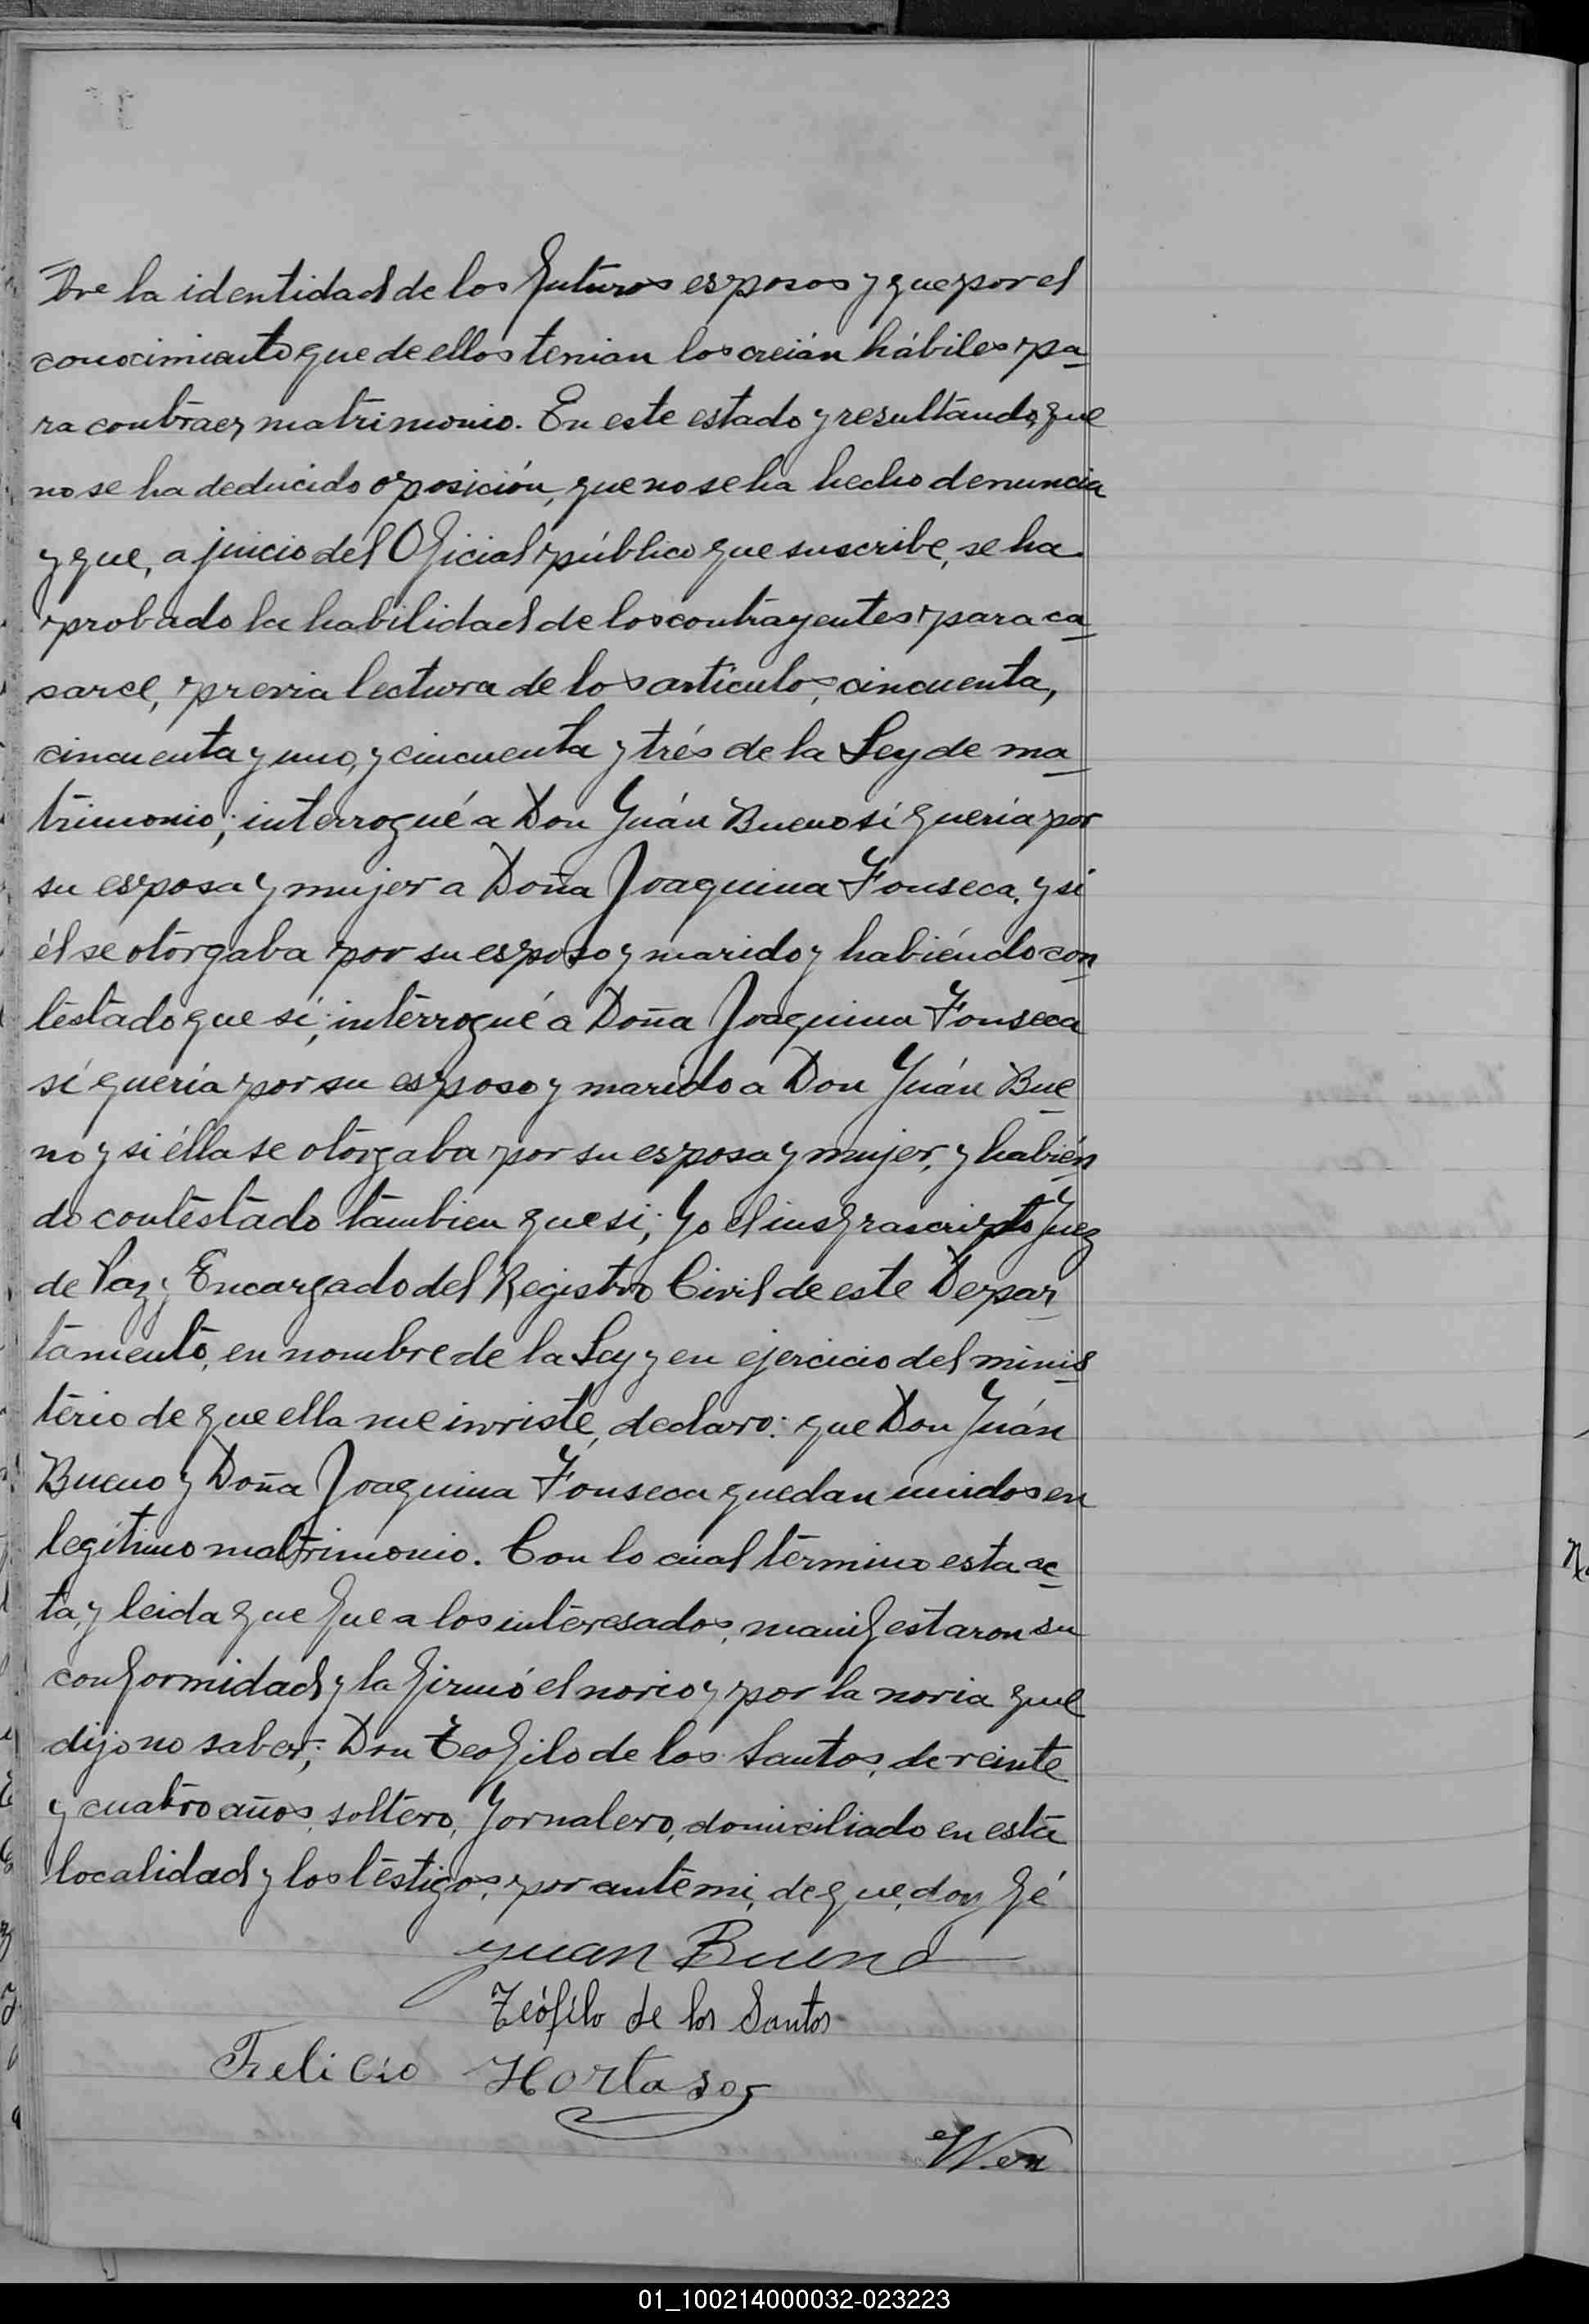 bre la identidad de los futuros esposos y que por el
conocimiento que de ellos tenian los creián hábiles pa
ra contraer matrimonio. En este estado y resultando, que
no se ha deducido oposición, que no se ha hecho denuncia
y que, a juicio del Oficial público que suscribe, se ha
probado la habilidad de los contrayentes para ca
sarse, previa lectura de los artículos, cincuenta,
cincuenta y uno, y cincuenta y trés de la Ley de ma
trimonio; interrogué a Don Juán Bueno sí quería por
su esposa y mujer a Doña Joaquina Fonseca, y si
él se otorgaba por su esposo y marido y habiéndo con
testado que sí; interrogué a Doña Joaquina Fonseca
sí quería por su esposo y marido a Don Juán Bue
no y si élla se otorgaba por su esposa y mujer, y habién
do contestado tambien que si; Yo el infrascripto Juez
de Paz y Encargado del Registro Civil de este Depar
tamento, en nombre de la Ley y en ejercicio del minis
terio de que ella me inviste, declaro: que Don Juán
Bueno y Doña Joaquina Fonseca quedan unidos en
legítimo matrimonio. Con lo cúal termino esta ac
ta, y leida que fue a los interesados, manifestaron su
conformidad y la firmó el novio y por la novia que
dijo no saber; Don Teofilo de los Santos, de veinte
y cuatro años, soltero, Jornalero, domiciliado en esta
localidad y los testigos, por ante mi, de que, doy fé
Juan Bueno
Teófilo de los Santos
Felicio Hortasor
01_100214000032-023223